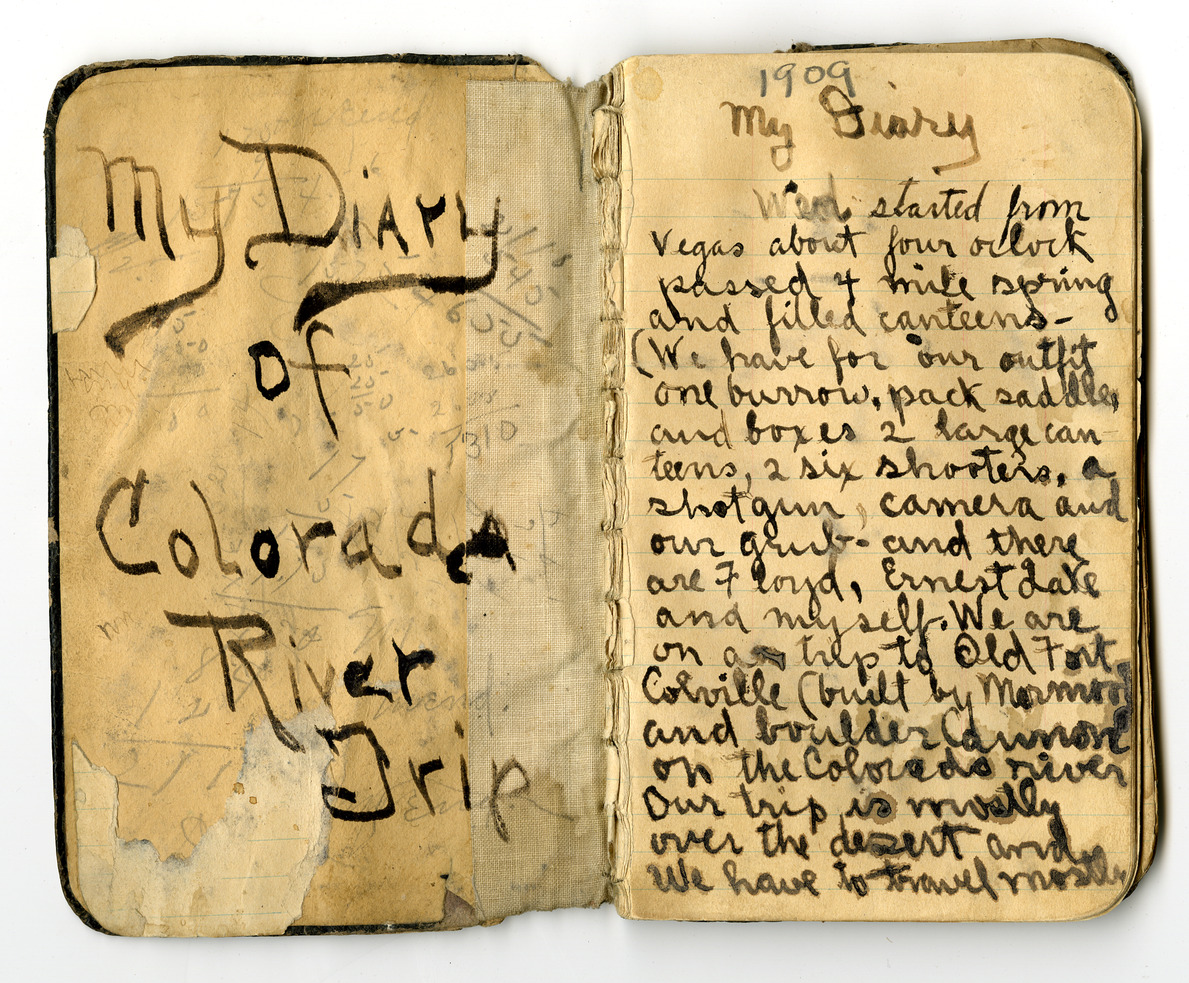 My Diary
of
Colorado
River
Trip
1909
My Diary
Wed. started from
Vegas about four oclock
passed 4 mile spring
and filled canteens-
(We have for our outfit
one burrow, pack saddle,
and boxes 2 large can-
teens, 2 six shooters, a
shotgun, camera and
our grub- and there
are Floyd, Ernest Lake
and myself. We are
on a trip to Old Fort
Colville (built by Mormons
and boulder Cannon
on the Colorado river
Our trip is mostly
over the desert and
We have to travel mostly